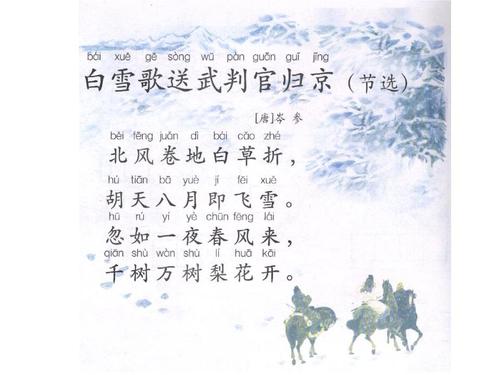 bái xuě gē sòng wǔ pàn guān guī jīng
白雪歌送武判官归京（节选）
[唐]岑 参
běi fēng juǎn dì bái cǎo zhé
北风卷地白草折，
hú tiān bā yuè jí fēi xuě
胡天八月即飞雪。
hū rú yí yè chūn fēng lái
忽如一夜春风来，
qiān shù wàn shù lí huā kāi
千树万树梨花开。